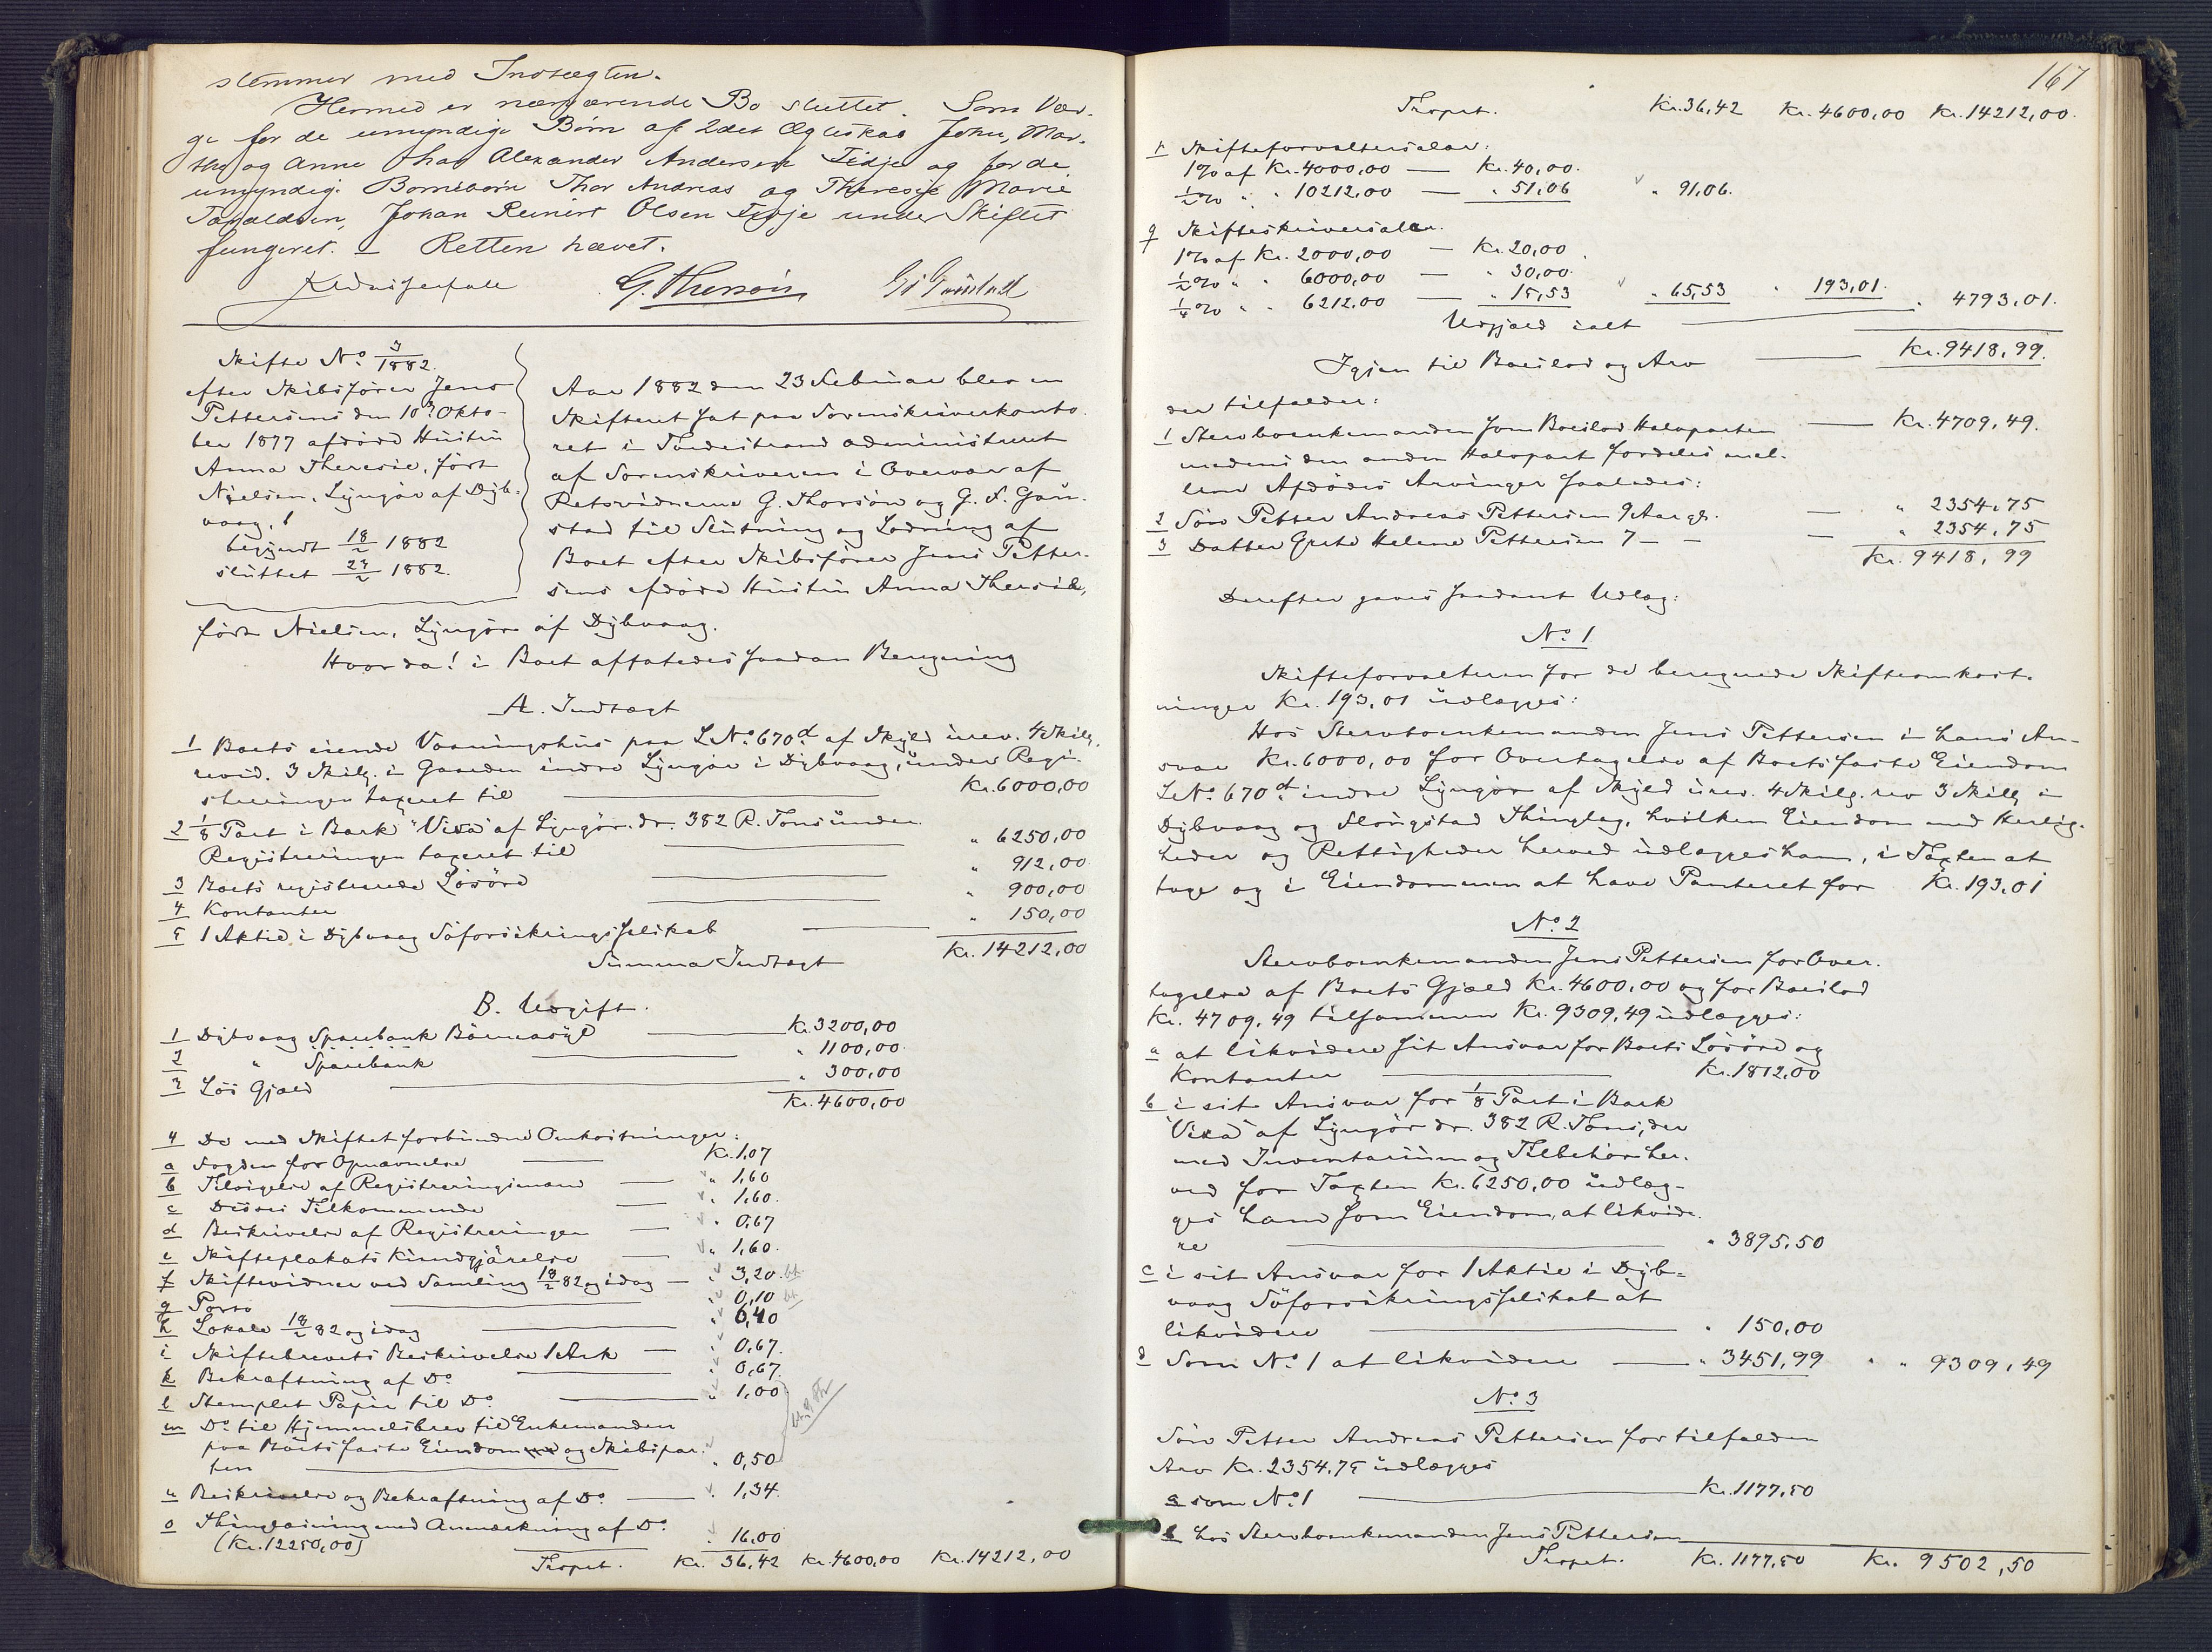 stemmer med Indtægten.
Hermed er nærværende Bo sluttet. Som Vær-
ge for de umyndige Børn af 2det Ægteskab John, Mar-
tha og Anne har Alexander Andersen Tvedje og for de
umyndige Børnebørn Thor Andreas og Therese Marie
Taraldsen, Johan Reinert Olsen under Skiftet
fungeret. – Retten hævet.
G. Thorsön
Skifte No. 3/1882
efter Skibsförer Jens
Pettersens den 10de Okto-
ber 1877 afdöde Hustru
Anna Theresie, født
Nielsen, Lyngör af Dyb-
vaag,
begyndt 18/2 1882
sluttet 23/2 1882.
Aar 1882 den 23 Februar blev en
Skifteret sat paa Sorenskriverkonto-
ret i Tvedestrand administreret
af Sorenskriveren i Overvær af
Retsvidnerne G. Thorsön og G. F. Gün-
stad til Slutning og Lodning af
Boet efter Skibsförer Jens Petter-
sens afdöde Hustru Anna Theresie,
født Nielsen, Lyngör af Dybvaag.
Hvorda! i Boet affatedes saadan Beregning
A. Indtægt
1 Boets eiende Vaaningshus paa L No. 670d af Skyld urev. 4 Skilg.
revid. 3 Skilg. i Gaarden indre Lyngör i Dybvaag, under Regi-
streringen taxeret til Kr. 6000,00
2 1/8 Part i Bark "Visa" af Lyngör dr. 382 R. Tons under
Registreringen taxeret til " 6250,00
3 Boets registrerede Lösöre " 912,00
4 Kontanter " 900,00
5 1 Aktie i Dybvaag Söforsikringsselskab " 150,00
Summa Indtægt Kr. 14212,00
B. Udgift.
1 Dybvaag Sparebank Börneasyl Kr. 3200,00
2 " Sparebank " 1100,00
3 Lös Gjæld " 300,00
Kr. 4600,00
4 De med Skiftet forbundne Omkostninger:
a Fogden for Opnævnelse Kr. 1,07
b Tilsigelse af Registreringsmænd " 1,60
c Disses Tilkommende " 1,60
d Beskrivelse af Registreringen " 0,67
e Skifteplakats Kundgjörelse " 1,60
f Skiftevidner ved Samling 18/2 82 og idag " 3,20
g Porto " 0,10
h Lokale 18/2 82 og idag " 6,40
i Skiftebrevets Beskrivelse 1 Ark " 0,67
k Bekræftning af Do " 0,67
l Stemplet Papir til Do " 1,00
m Do til Hjemmelsbrev til Enkemanden
paa Boets faste Eiendom og Skibspar-
ten " 0,50
n Beskrivelse og Bekræftning af Do " 1,34
o Thinglæsning med Anmærkning af Do
(Kr. 12250,00) " 16,00
Trspt. Kr. 36,42 Kr. 4600,00 Kr. 14212,00
167
Trspt. Kr. 36,42 Kr. 4600,00 Kr. 14212,00.
p Skifteforvaltersalær:
1% af Kr. 4000,00 — Kr. 40,00.
1/2% " " 10212,00 — " 51,06 " 91,06.
q Skifteskriversalær.
1% af Kr. 2000,00 — Kr. 20,00
1/2% " " 6000,00 — " 30,00
1/4% " " 6212,00 — " 15,53 " 65,53 " 193,01. " 4793,01.
Udgjæld ialt
Igjen til Boeslod og Arv Kr. 9418,99.
der tilfalder:
1 Stervboenkemanden som Boeslod Halvparten Kr. 4709,49.
medens den anden Halvpart fordeles mel-
lem Afdödes Arvinger saaledes:
2 Sön Petter Andreas Pettersen 9 Aar gl. — " 2354,75
3 Datter Grete Helene Pettersen 7 – – — " 2354,75
Kr. 9418,99
Derefter gaves saadant Udlæg:
No. 1
Skifteforvalteren for de beregnede Skifteomkost-
ninger Kr. 193,01 udlægges:
Hos Stervboenkemanden Jens Pettersen i hans An-
svar Kr. 6000,00 for Overtagelse af Boets faste Eiendom
L No. 670d indre Lyngör af Skyld urev. 4 Skilg. rev 3 Skilg i
Dybvaag og Flougstad Thinglag, hvilken Eiendom med Herlig-
heder og Rettigheder herved udlægges ham, i Taxten at
tage og i Eiendommen at have Panteret for Kr. 193,01
No. 2
Stervboenkemanden Jens Pettersen for Over-
tagelse af Boets Gjæld Kr. 4600,00 og for Boeslod
Kr. 4709,49 tilsammen Kr. 9309,49 udlægges:
a at likvidere sit Ansvar for Boets Lösöre og
Kontanter Kr. 1812,00
b i sit Ansvar for 1/8 Part i Bark
"Visa" af Lyngör dr. 382 R. Tons, der
med Inventarium og Tilbehör her-
ved for Taxten Kr. 6250,00 udlæg-
ges ham som Eiendom, at likvide-
re " 3895,50
c i sit Ansvar for 1 Aktie i Dyb-
vaag Söforsikringsselskab at
likvidere " 150,00
d Som No. 1 at likvidere " 3451,99 " " 9309,49
No. 3
Sön Petter Andreas Pettersen for tilfalden
Arv Kr. 2354,75 udlægges
a som No. 1 Kr. 1177,50
b hos Stervboenkemanden Jens Pettersen
Trspt. Kr. 1177,50 Kr. 9502,50